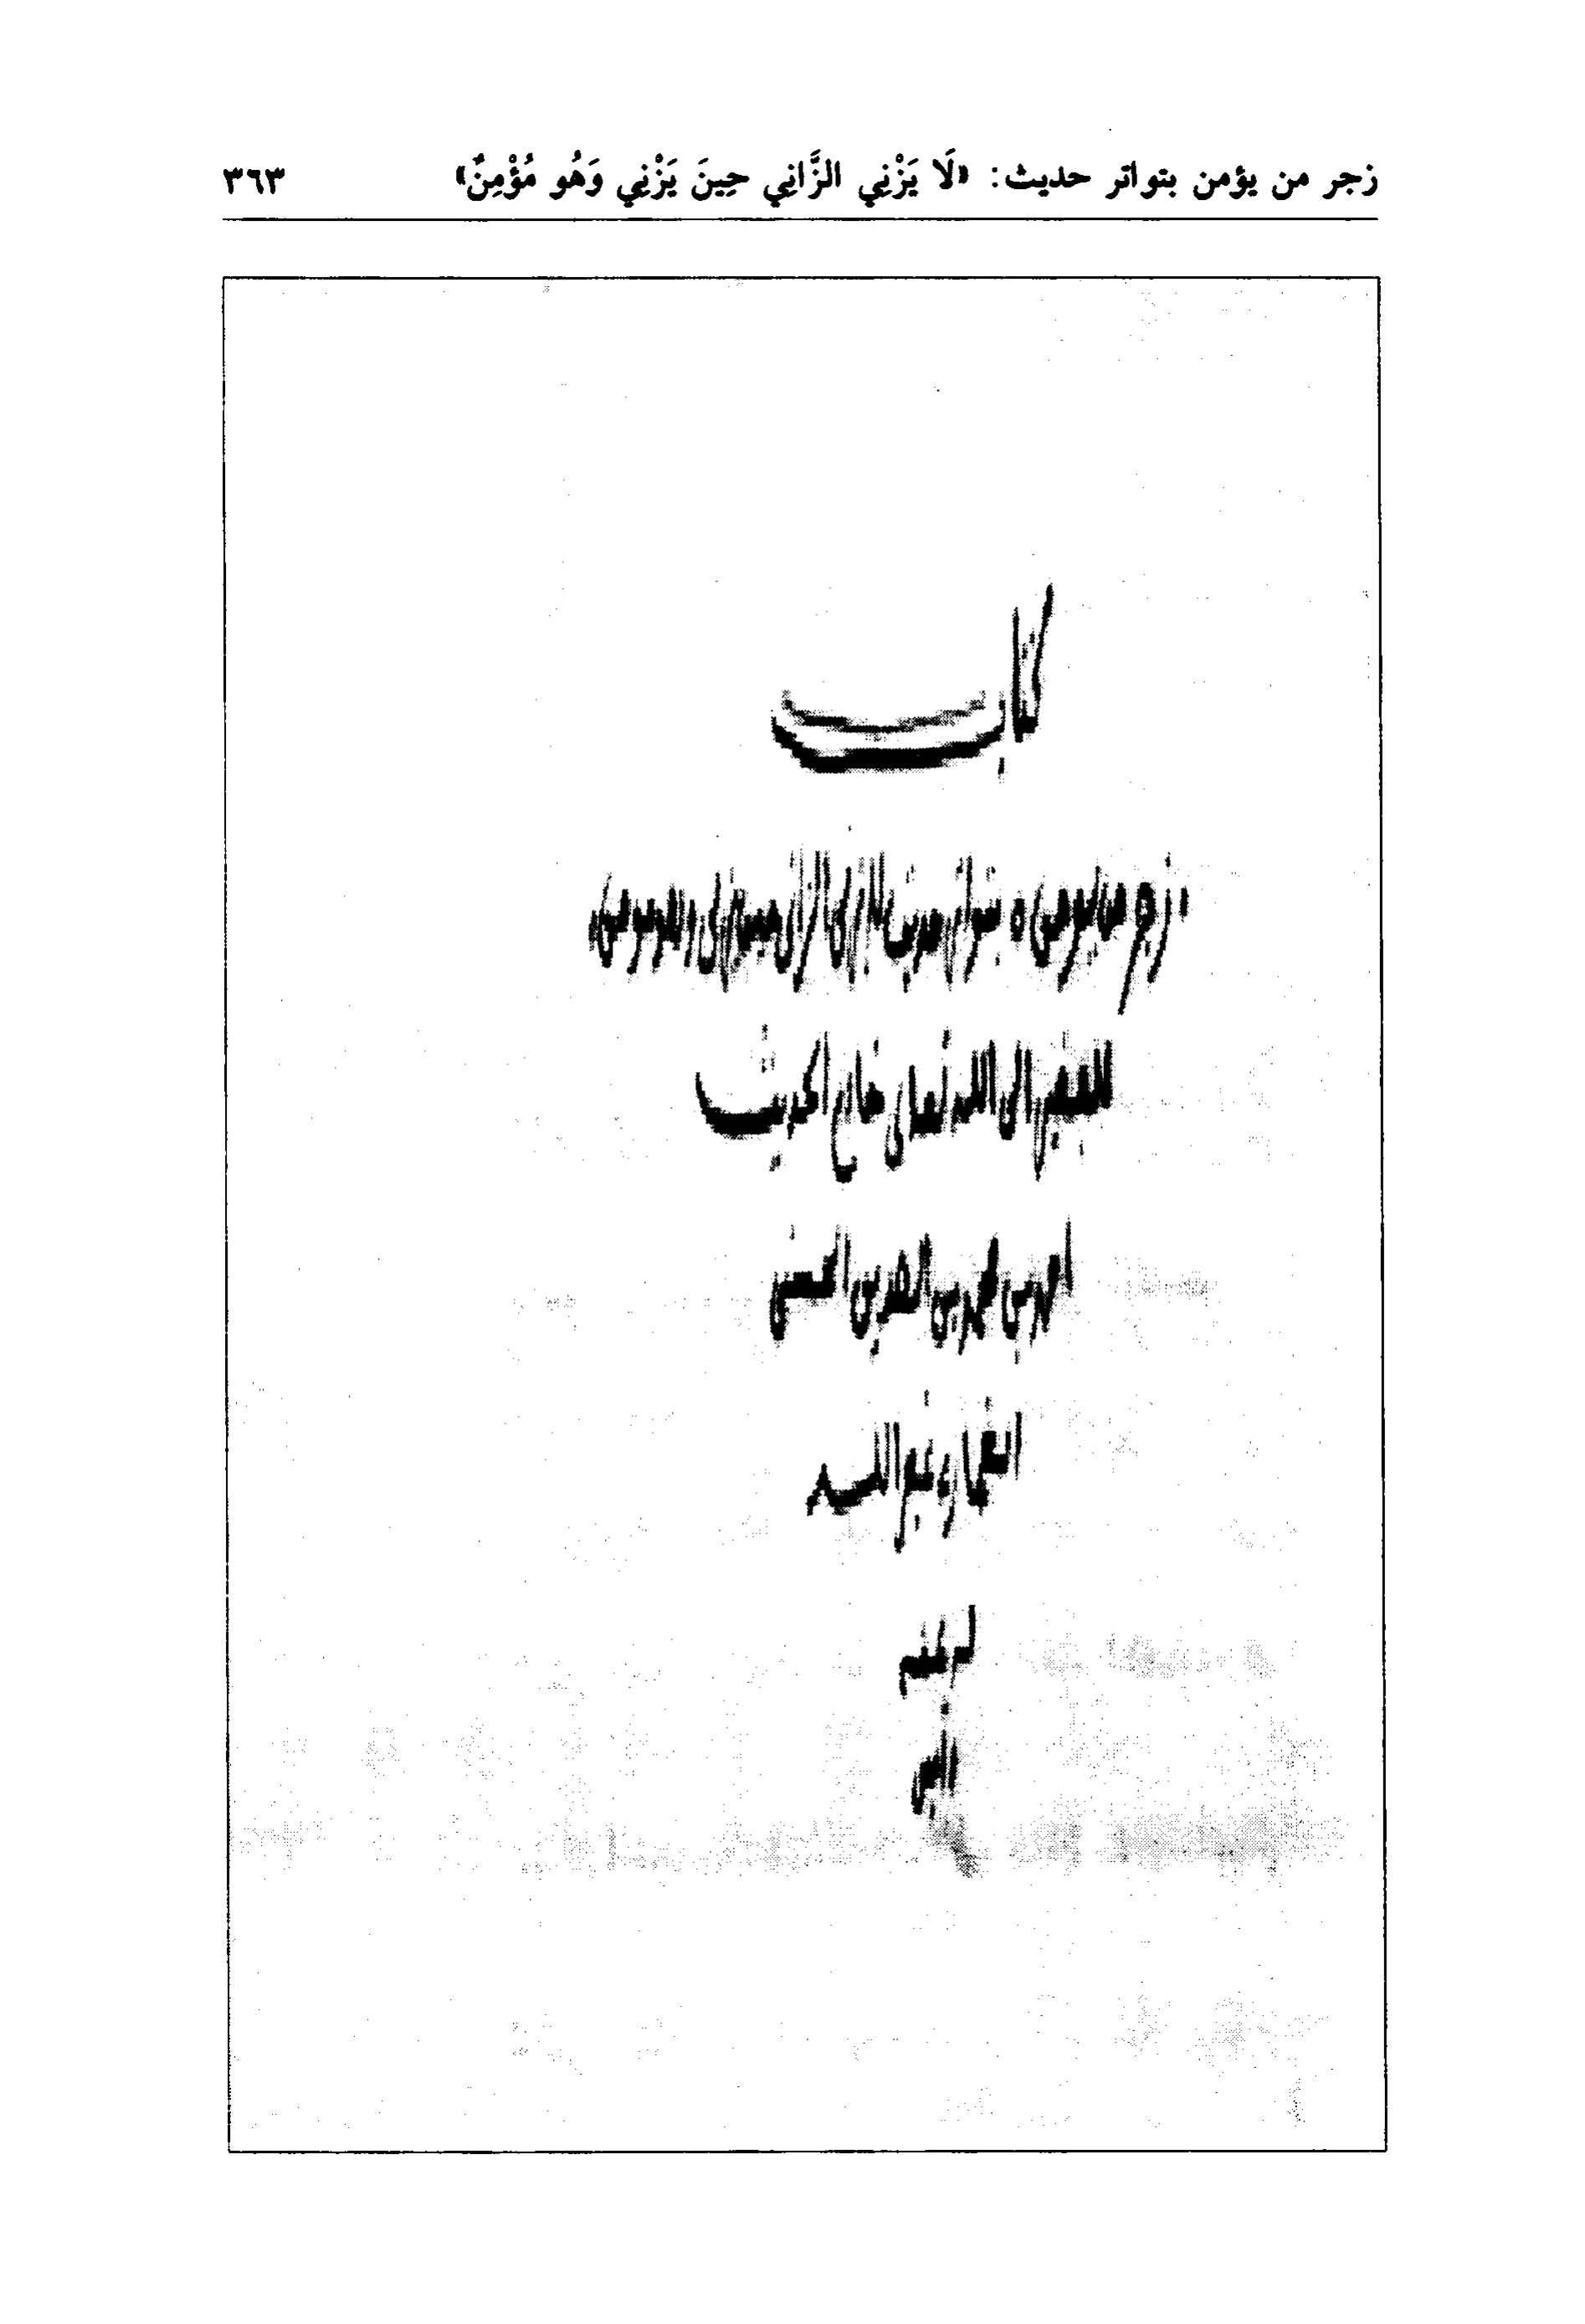 زجر من يؤمن بتواتر حديث: «لَا يَزْنِي الزَّانِي حِينَ يَزْنِي وَهُو مُؤْمِنٌ» ٣٦٣
كتاب
زجر من يومن بتواتر حديث لا يزنى الزانى حين يزنى وهو مومن
للفقير الى الله تعالى خادم الحديث
احمد بن محمد بن الصديق الحسنى
الغمارى غفر الله
له بمنه
امين